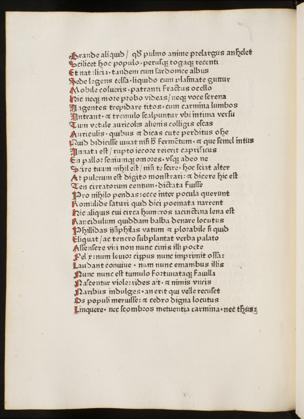 Grande aliquid / qđ pulmo anime prelargus anhelet
Scilicet hoc populo. pexusq togaq recenti
Et natalicia. tandem cum sardonice albus
Sede legens celsa. liquido cum plasmate guttur
Mobile colueris. patranti fractus ocello
Hic neq more probo videas / neq voce serena
Ingentes trepidare titos: cum carmina lumbos
Intrant: & tremulo scalpuntur vbi intima versu
Tun vetule auriculis alienis colligis escas
Auriculis. quibus & dicas cute perditus ohe
Quid didicisse nisi fermentum. & que semel intus
Innata est / rupto iecore exierit caprificus
En pallor seniumq o mores. vsq adeo ne
Scire tuum nihil est / nisi te scire. hoc sciat alter
At pulcrum est digito monstrari: & dicere hic est
Ten cirratorum centum. dictata fuisse
Pro nihilo pendas: ecce inter pocula querunt
Romulide saturi quid poemata narrent
Hic aliquis cui circa humeros iacinctina lena est
Rancidulum quiddam balba denare locutus
Phillidas isiphilas vatum & plorabile si quid
Eliquat / ac tenero subplantat verba palato
Assensere viri non nunc cinis ille poete
Felix: non leuior cippus nunc imprimit ossa:
Laudant conuiue. nunc non emanibus illis
Nunc non e tumulo fortunataq fauilla
Nascentur viole: rides ait. & nimis vncis
Naribus indulges. an erit qui velle recuset
Os populi meruisse: & cedro digna locutus
Linquere. nec scombros metuentia carmina. nec thus: